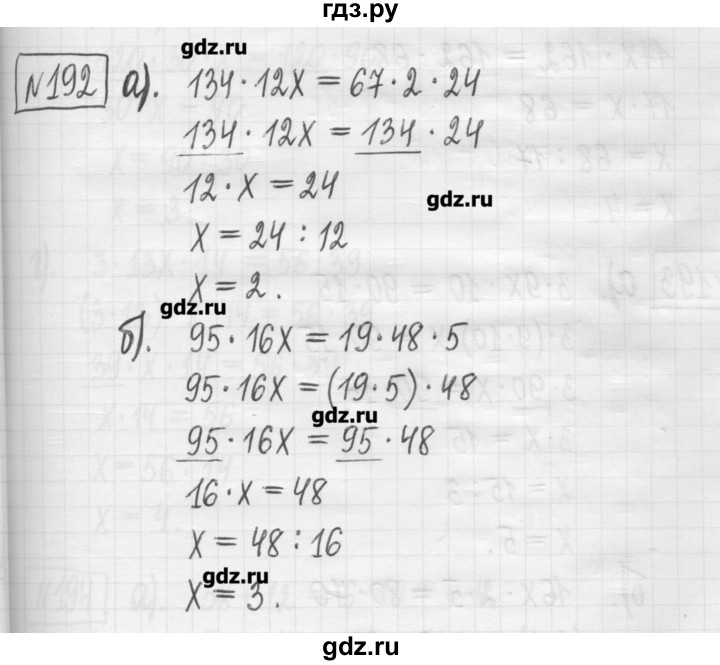 гдз.ру
gdz.ru
№192 а). 134·12x = 67·2·24
134·12x = 134·24
12·x = 24
gdz.ru
x = 24 : 12
x = 2.
gdz.ru
б). 95·16x = 19·48·5
95·16x = (19·5)·48
gdz.ru
95·16x = 95·48
16·x = 48
x = 48 : 16
gdz.ru
x = 3.
gdz.ru